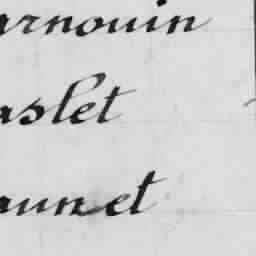 arnouin
aslet
aunet